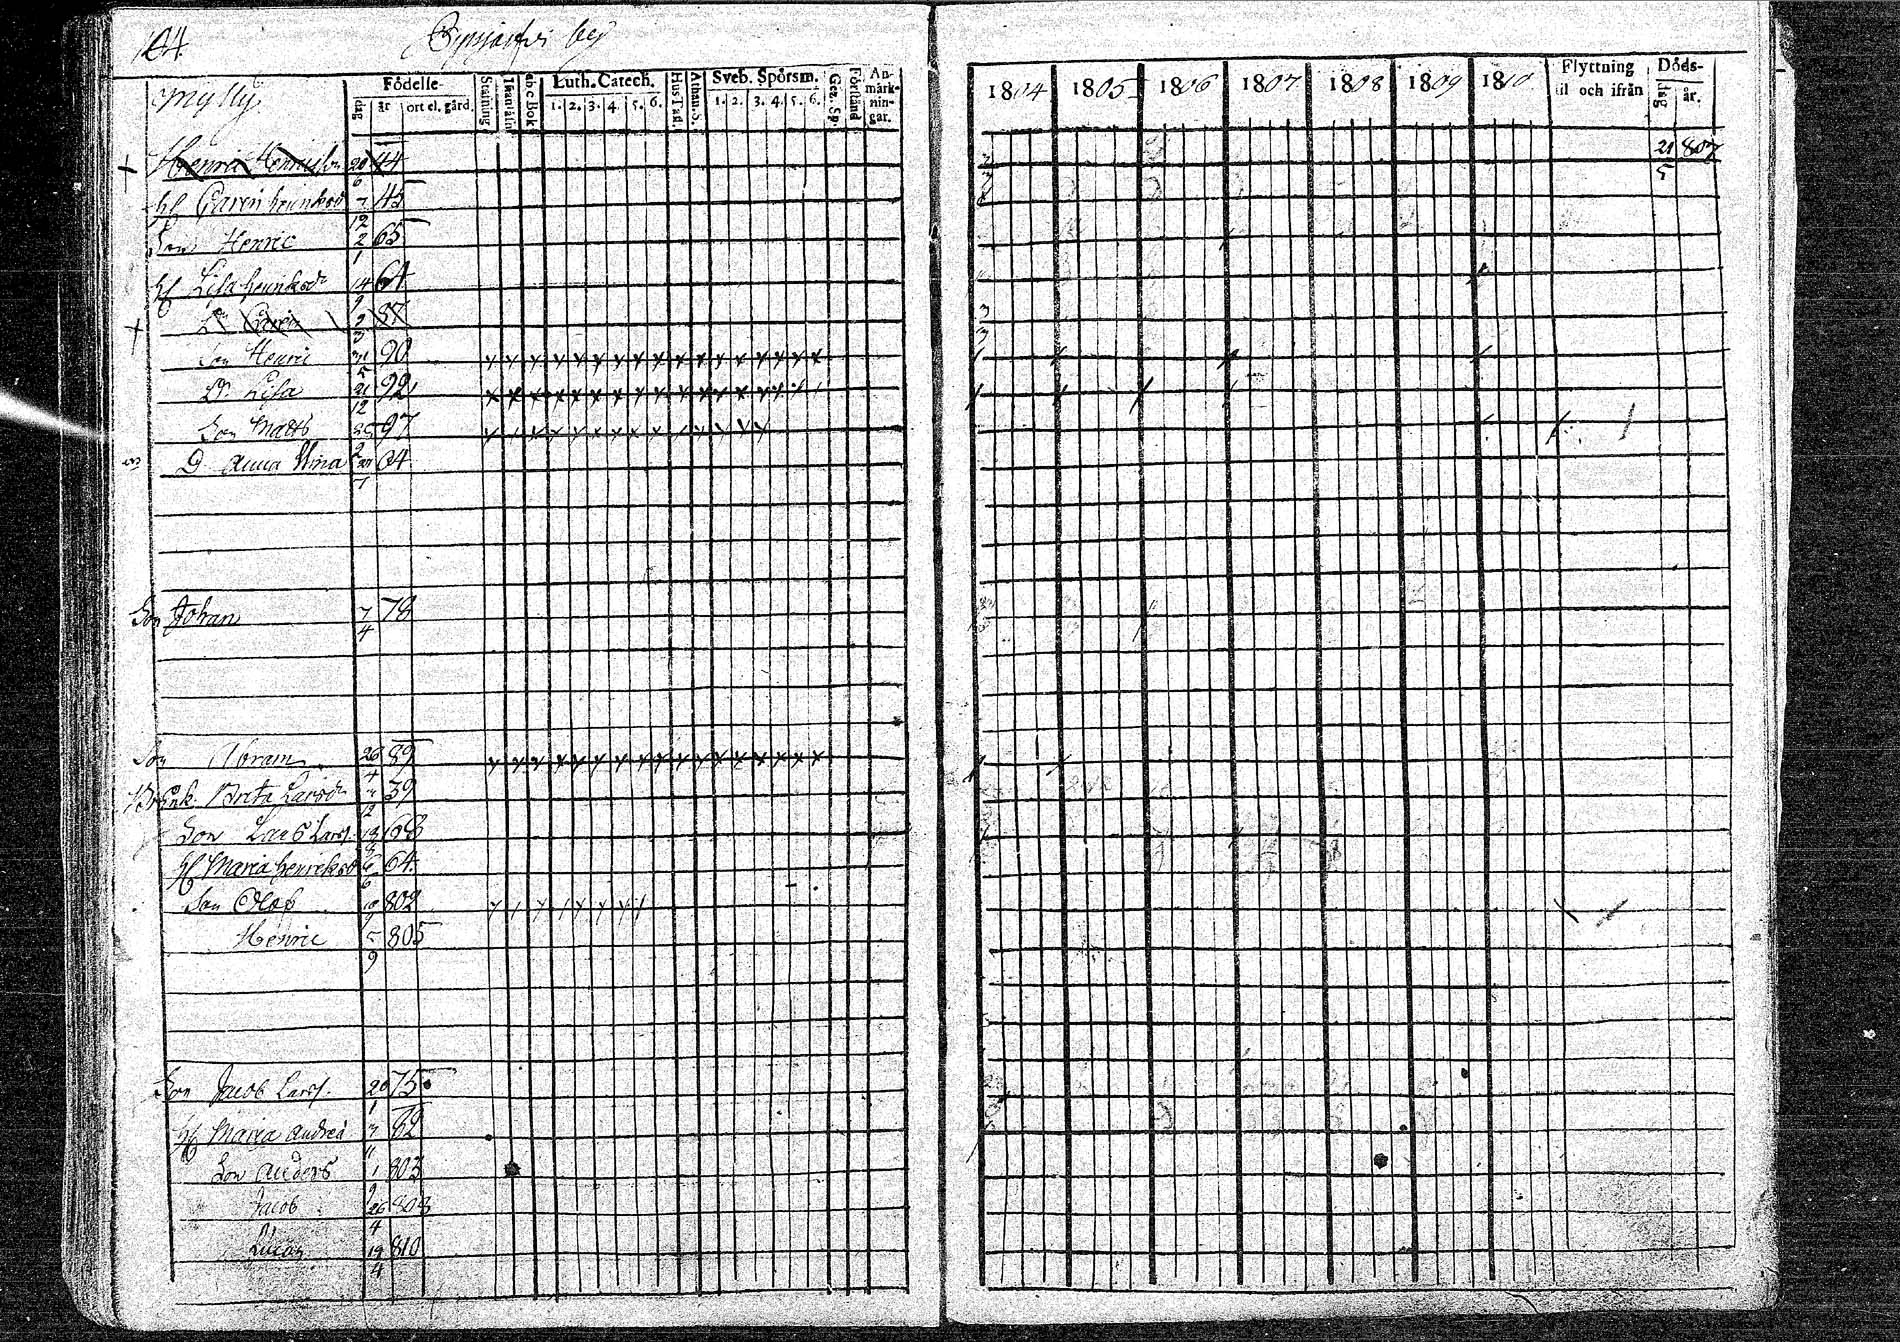 144
by
Födelse
Stafning
Luth. Catech.
Hus Tafl.
Athan. S.
Sveb. Spörsm.
Gez. Sp.
Förstånd
An-
märk-
nin-
gar.
dag år ort el. gård.
abc Bok
1. 2. 3. 4. 5. 6.
1. 2. 3. 4. 5. 6.
Henric Henricsson 20/6 44
hf Carin henriksd 7/12 45
Son Henric 2/1 65
hf Lisa henriksdr 14/9 64
Dr Carin 9/3 87
Son Henric 31/5 90
Dr Lisa 21/12 92
Son Matts 97
D Anna Stina 04
Son Johan 7/4 78
Son Abram 26/4 89
Enk. Brita Larsdr 39
Son Lars Larss. 18/8 68
hf Maria henriksd 6/6 64
Son Olof 10/9 802
Henric 5/9 805
Son Jacob Larss. 20/1 75
hf Maria Andreä 7/11 82
Son Anders 1/9 803
Jacob 26/4 808
19/4 810
1804 1805 1806 1807 1808 1809 1810
Flyttning
til och ifrån
Döds-
dag år.
21/5 807